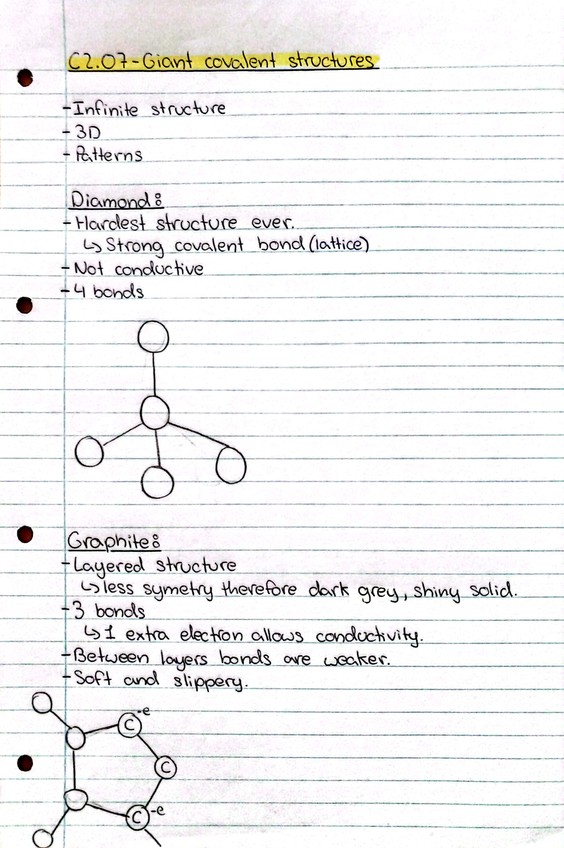 C2.07-Giant covalent structures
-Infinite structure
-3D
-Patterns
Diamond:
-Hardest structure ever.
↳ Strong covalent bond (lattice)
-Not conductive
-4 bonds
Graphite:
-Layered structure
↳ less symetry therefore dark grey, shiny solid.
-3 bonds
↳ 1 extra electron allows conductivity.
-Between layers bonds are weaker.
-Soft and slippery.
C -e
C
C -e